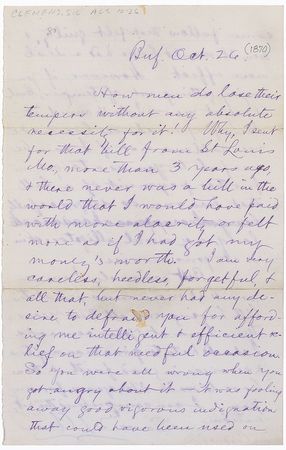 CLEMENS, S.L. ALS 10/26
Buf. Oct. 26 (1870)
How men do lose their
tempers without any absolute
necessity for it! Why, I sent
for that bill from St Louis
Mo, more than 3 years ago,
& there never was a bill in the
world that I would have paid
with more alacrity or felt
more as if I had got my
money's worth. I am very
careless, heedless, forgetful, &
all that, but never had any de-
sire to defraud you for afford-
ing me intelligent & efficient re-
lief on that needful occasion.
So you were all wrong when you
got angry about it — it was fooling
away good vigorous indignation
that could have been used on